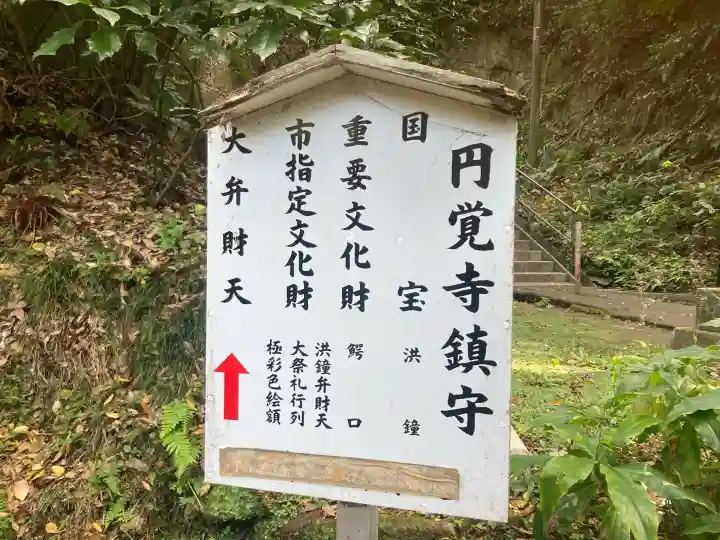 円覚寺鎮守
国宝 洪鐘
重要文化財 鰐口
市指定文化財 洪鐘弁財天
大祭礼行列
極彩色絵額
大弁財天